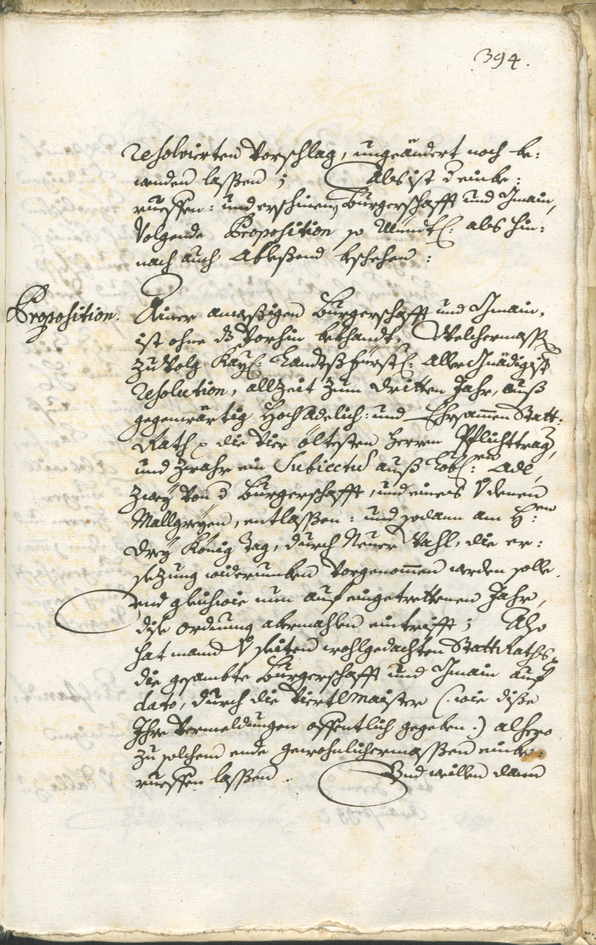 394.
resolvierten Vorschlag, ungeändert noch be:
wenden laßen; Als ist d einbe:
rueffen: und erschinen Burgerschafft und Gmain,
Volgende Proposition so Mündtl: als hin:
nach auch Ableßend beschehen:
Proposition.
Ainer ainer Burgerschafft und Gmain,
ist ohne ds Vorhin bekhandt, Welchermassen
zu Volg Kayl: Landtsfürstl: Allergnädigist
resolution, allzeit zum dritten Jahr, auß
gegenwärtig HochAdelich: und Ehrsamen Statt:
Rath die Vier öltesten Herren Pflichttrag,
und zwahr ein Subiectum auß Löbl: Adl,
zwey von d Burgerschafft, und eines V denen
Mallgreyen, entlaßen: und sodann am H:
Drey König Tag, durch Neue Wahl, die er:
sezung widerumben Vorgenomen werden solle.
Und gleichwie nun auf eingetrettenen Jahr,
dise ordnung abermahlen eintrifft; Also
hat mann V seiten wohlgedachten StattRaths
die gesambte Burgerschafft und Gmain auf
dato, durch die Viertlmaister (: wie diße
Ihre Vermeldungen offentlich gegeben :) alhero
zu solchem ende gewohnlichermaßen einbe:
rueffen laßen. Und willen dann